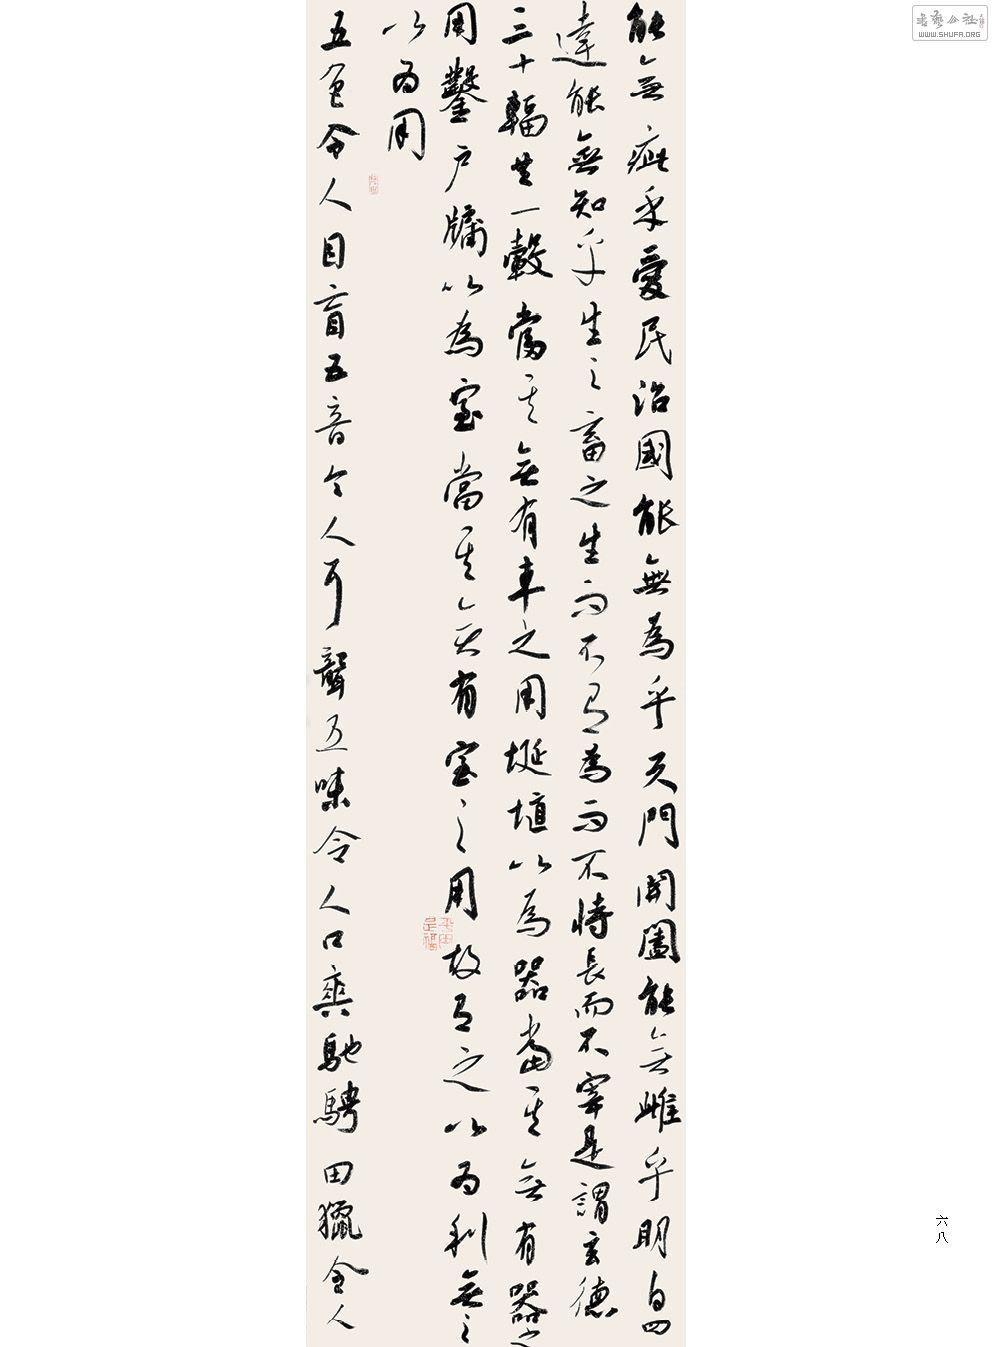 能無疵乎愛民治國能無為乎天門開闔能無雌乎明白四
達能無知乎生之畜之生而不有為而不恃長而不宰是謂玄德
三十輻共一轂當其無有車之用埏埴以為器當其無有器之
用鑿戶牖以為室當其無有室之用故有之以為利無之
以為用
五色令人目盲五音令人耳聾五味令人口爽馳騁田獵令人
六八
書藝公社
WWW.SHUFA.ORG